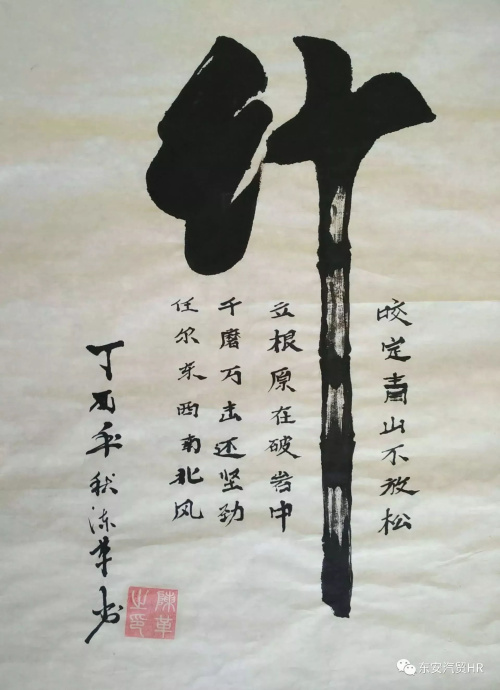 竹
咬定青山不放松
立根原在破岩中
千磨万击还坚劲
任尔东西南北风
丁酉年秋陈革书
陳革之印
东安汽贸HR